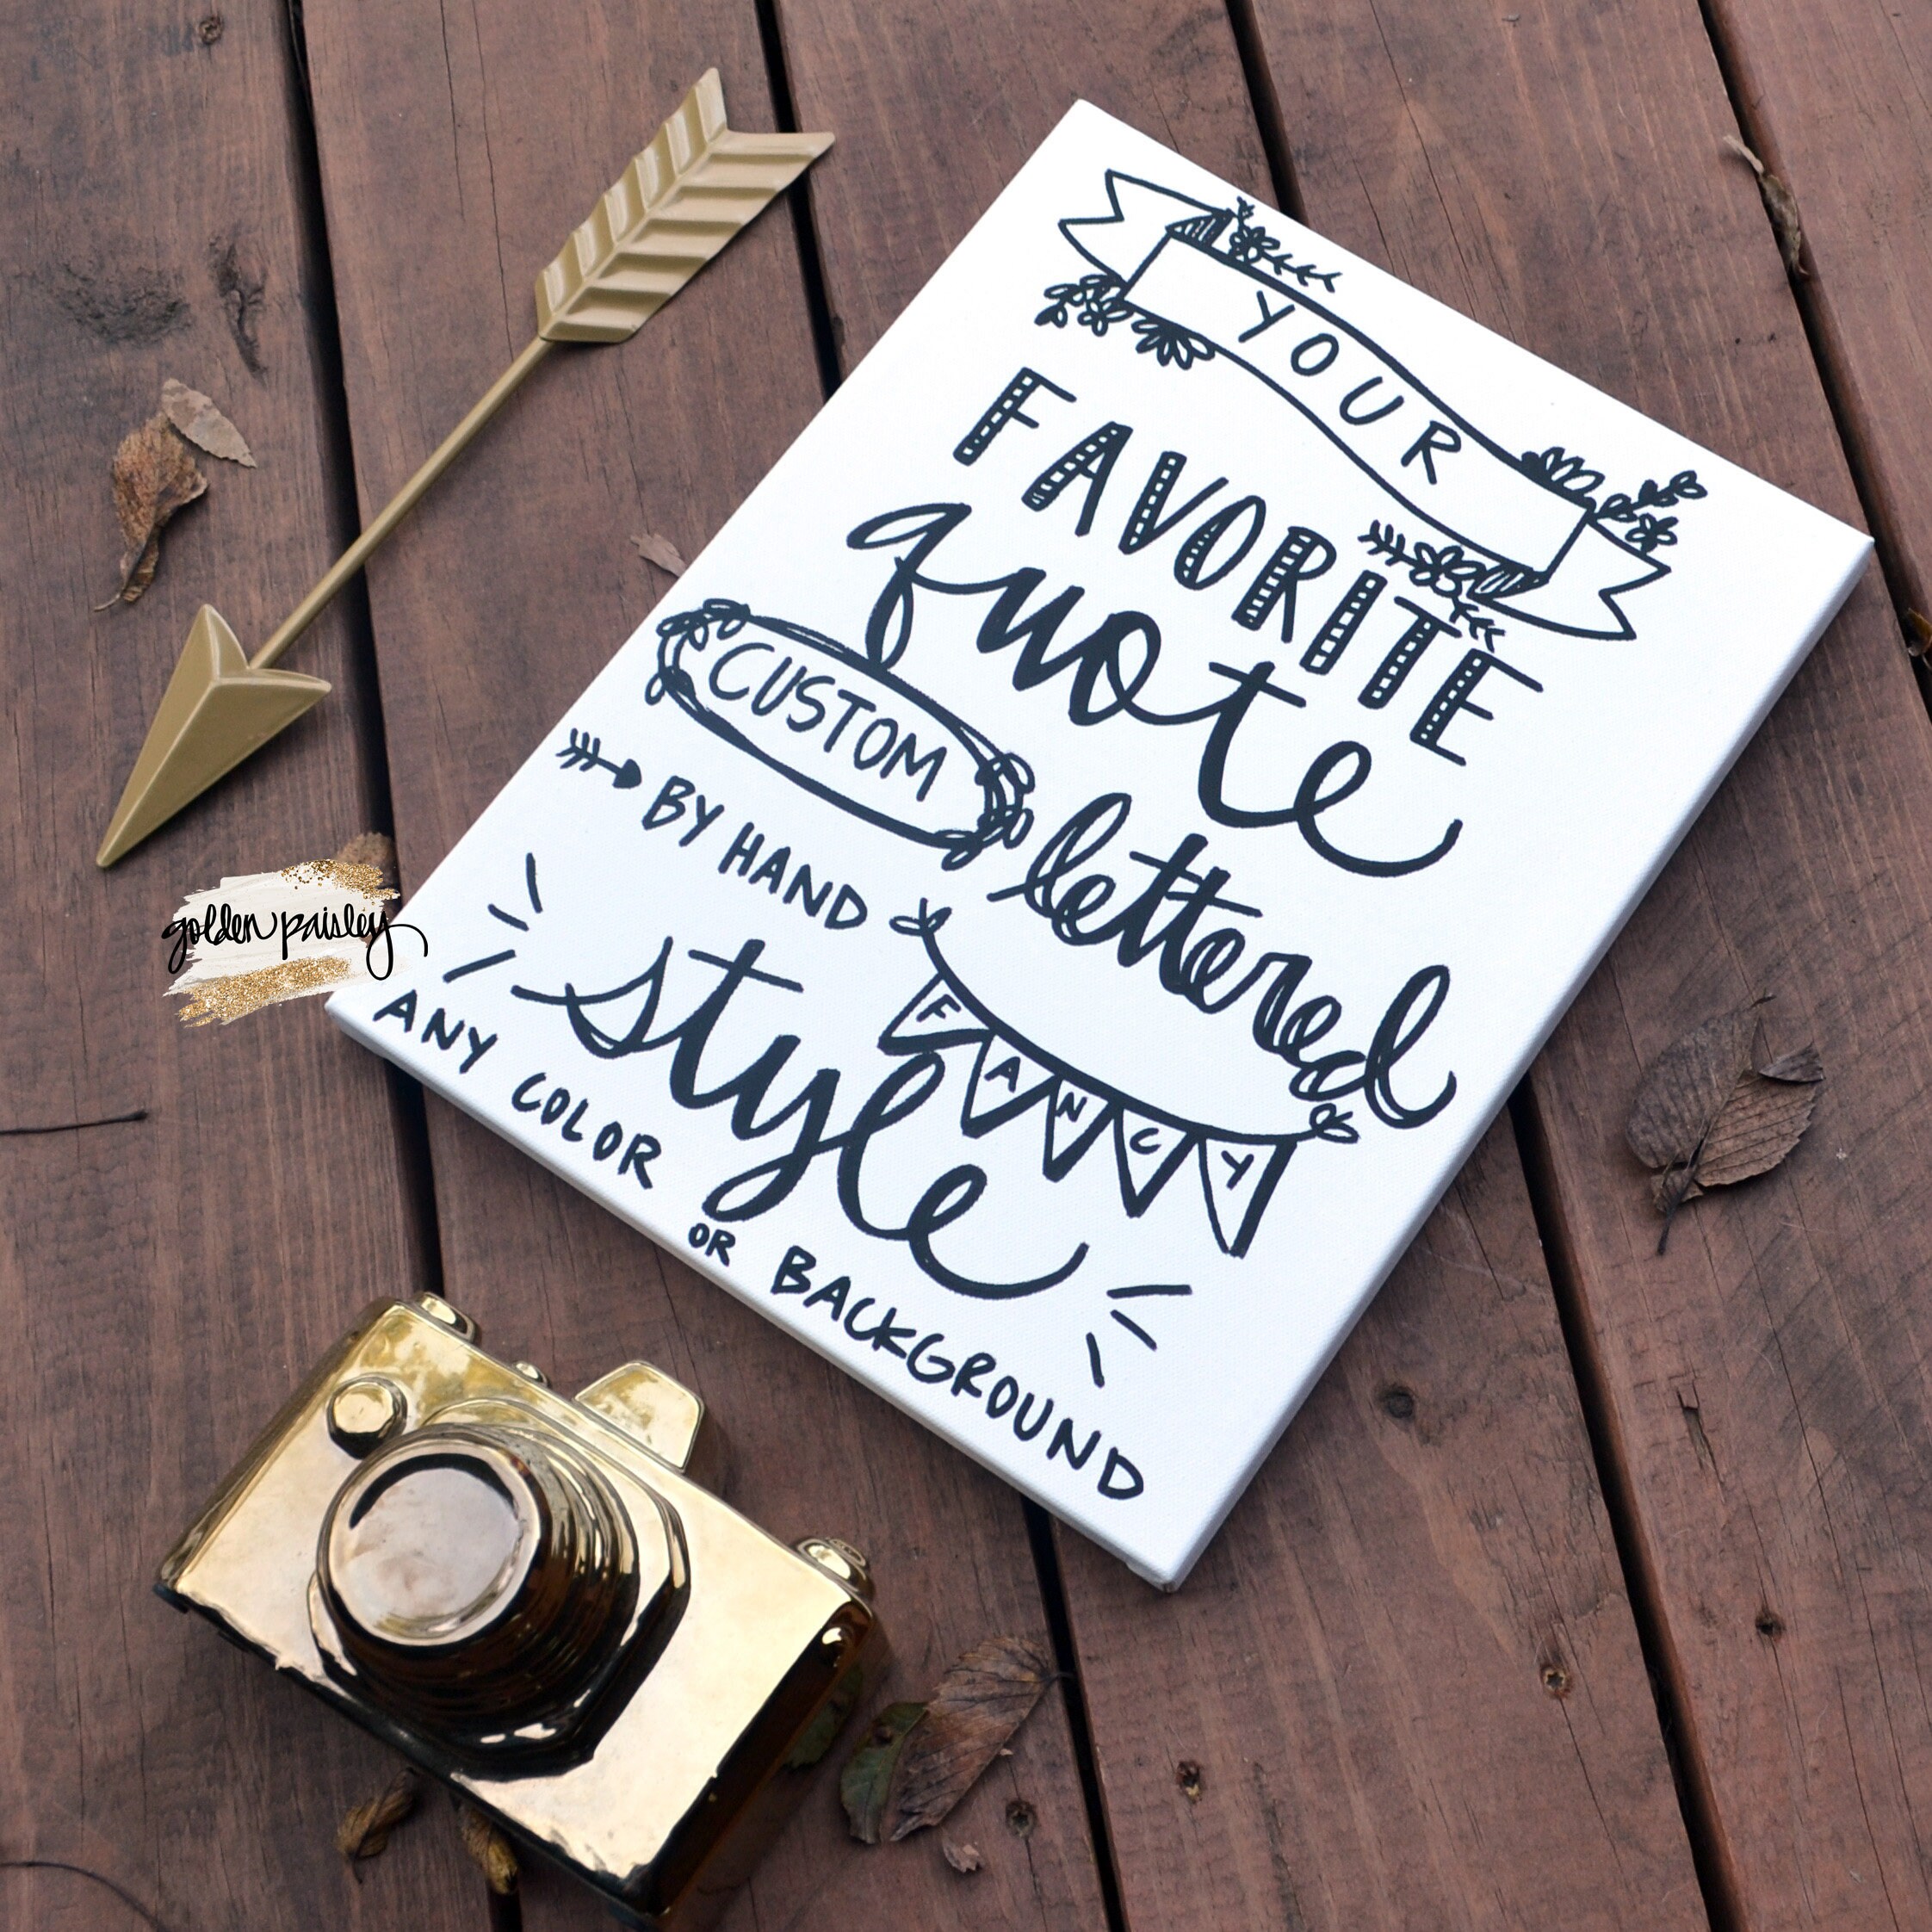 YOUR
FAVORITE
quote
CUSTOM lettered
BY HAND
FANCY
style
ANY COLOR OR BACKGROUND
golden paisley